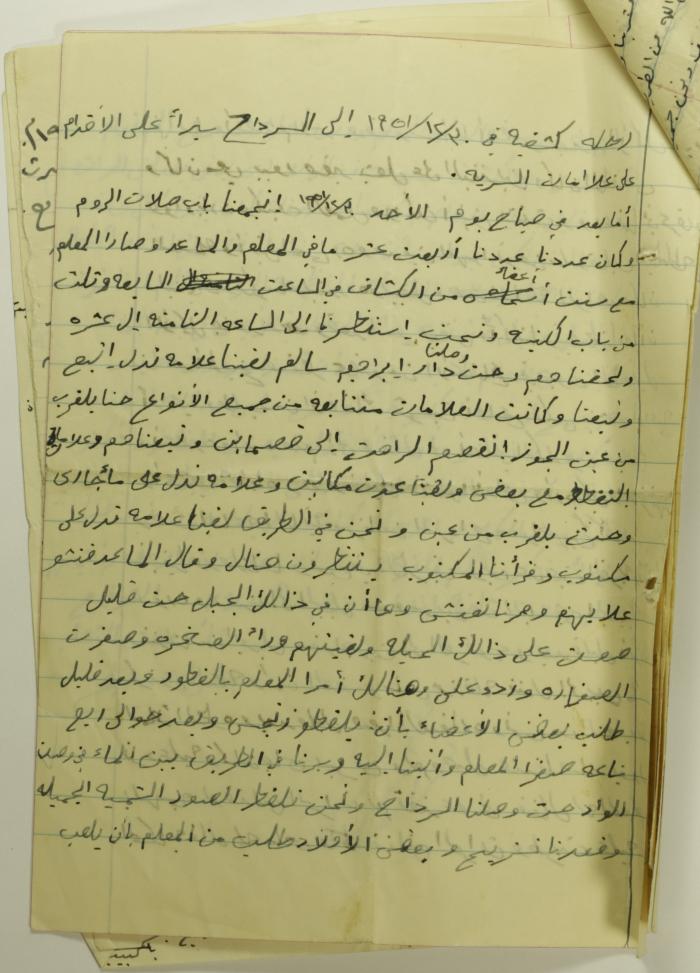 رحله كشفيه في ٣٠/١٢/١٩٥١ إلى السرداح سيراً على الأقدام
على علامات السريه.
أما بعد في صباح يوم الأحد ٣٠/١٢/١٩٥١ إجتمعنا باب صلات الروم
وكان عددنا عددنا أربعت عشر ما في المعلم والمساعد وصار المعلم
مع ستت أعضاء من الكشاف في الساعت السابعه وتلت
من باب الكنيه ونحن إستنظرنا إلى الساعه الثامنه إل عشره
ولحقناهم وحت وصلنا دار إبراهيم سالم لقينا علامه تدل إتبع
وتبعنا وكانت العلامات متتابعه من جميع الأنواع حنا بلقرب
من عين الجوز إنقصم الراهت إلى قصماين وتبعناهم وعلامة
التقطر مع بعض ولقينا عدت مكاتيب وعلامه تدل على ماءجاري
وحدت بلقرب من عين ونحن في الطريق لقينا علامه تدل على
مكتوب وقرأنا المكتوب يستنظرون هنال وقال المساعد فتشو
علا يهم وصرنا نفتش وعا أن في ذالك الجبل حت قليل
على ذالك الجميله ولقيتهم وراء الصخره وصفرت
الصفاره وردو على وهنالك أمرا المعلم بالفطور وبعد قليل
طلب بعض الأعضاء بأن يلقطو نرجس وبعد حوالى ربع
ساعه صفرا المعلم وأتينا إليه وسرنا في الطريق بين الماء في وصت
الواد حت وصلنا السرداح ونحن نلقط الصور الشمسيه الجميله
وقعدنا نستريح وبعض الأولاد طلب من المعلم بأن يلعب